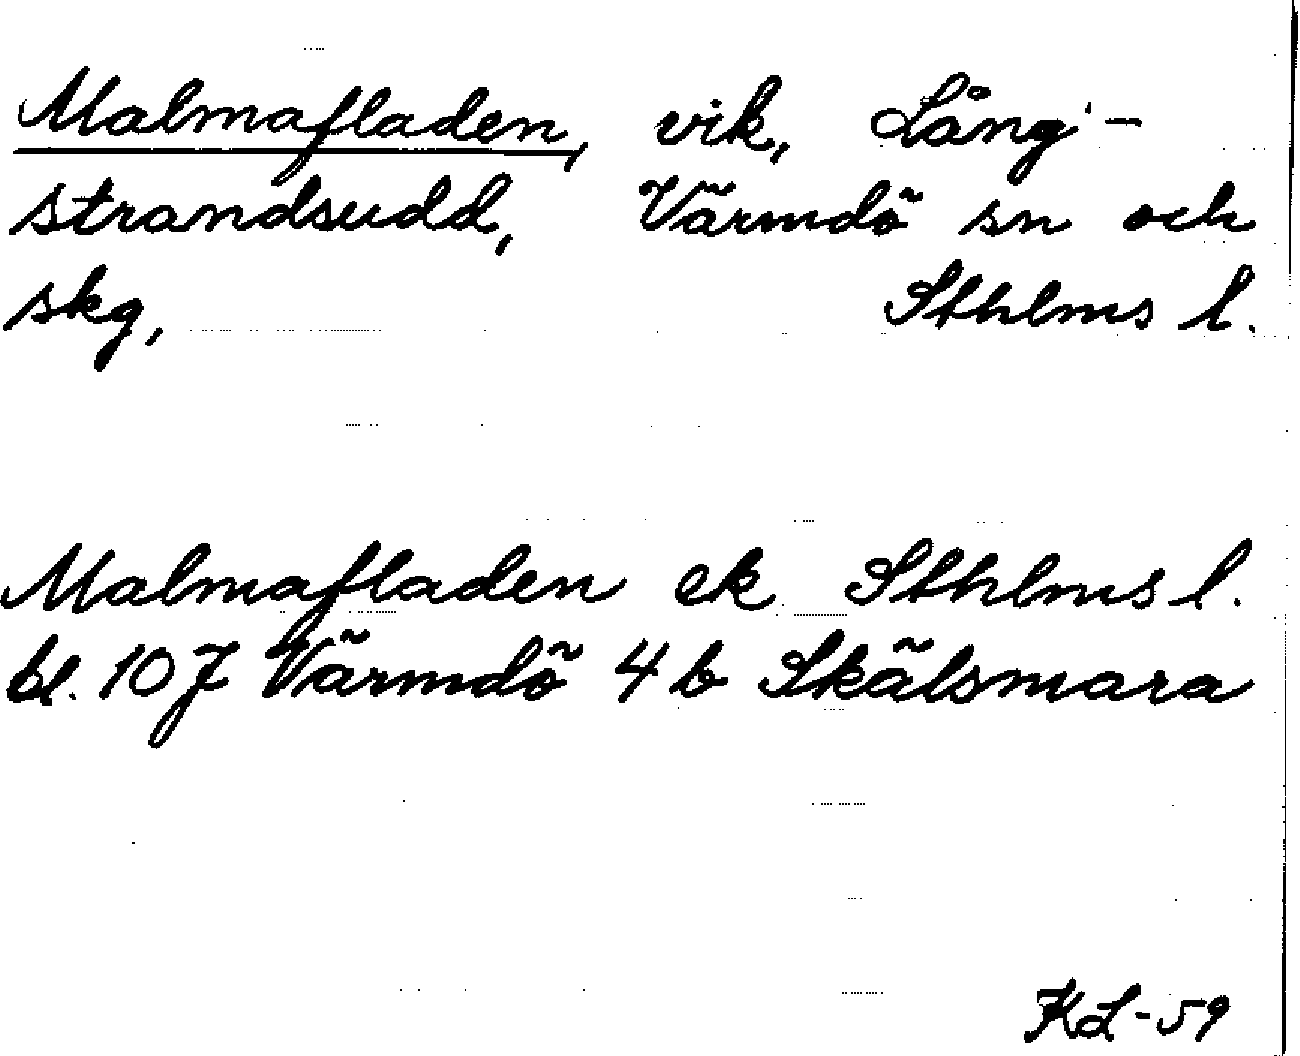 Malmafladen, vik, Lång-
strandsudd, Värmdö sn och
skg, Sthlms l.
Malmafladen ek Sthlms l.
bl. 10 J Värmdö 4 b Skälsmara
KL-59